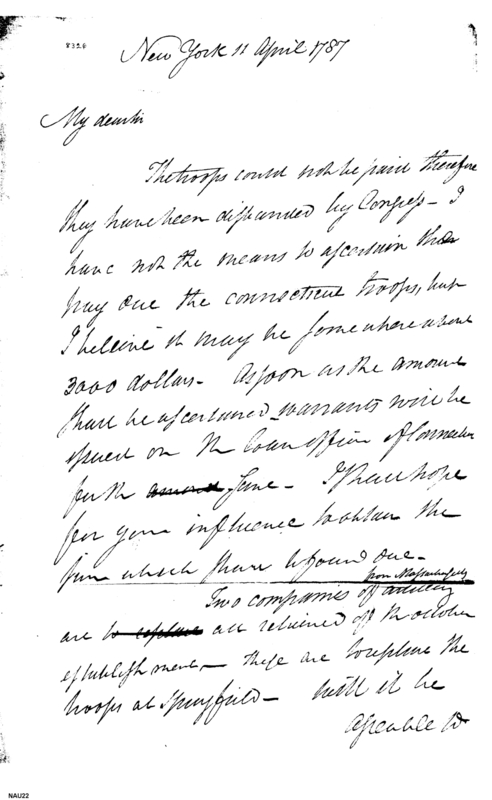 8326
New York 11 April 1787
My dear sir
The troops could not be paid therefore
they have been disbanded by Congress – I
have not the means to ascertain the
pay due the connecticut troops, but
I believe it may be somewhere about
3000 dollars – As soon as the amount
shall be ascertained warrants will be
issued on the loan officer of Connecticut
for the same – I shall hope
for your influence to obtain the
sum which shall be found due –
from Massachusetts
Two companies of artillery
are to replace all retained of the october
establishment – these are to replace the
troops at Springfield – Will it be
agreeable to
NAU22